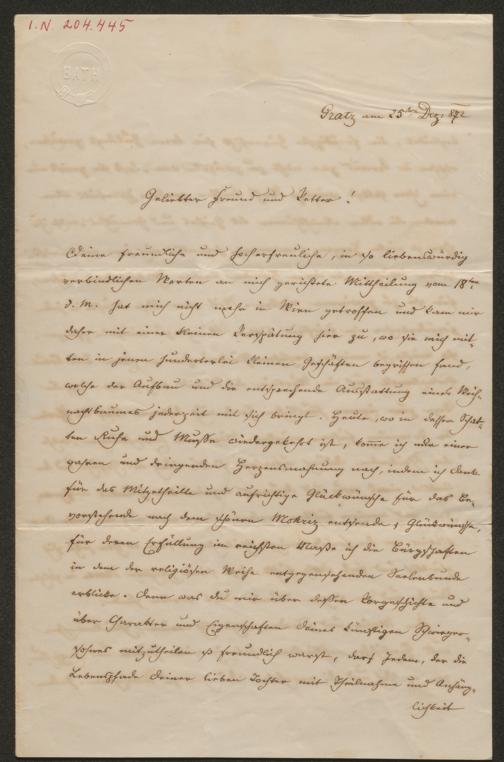 I.N. 204.445
BATH
Gratz am 25ten Dez: 872
Geliebter Freund und Vetter!
Deine freundliche und hocherfreuliche, in so liebenswürdig
verbindlichen Worten an mich gerichtete Mittheilung vom 18ten
d. M. hat mich nicht mehr in Wien getroffen und kam mir
daher mit einer kleinen Verspätung hier zu, wo sie mich mit-
ten in jenen hunderterlei kleinen Geschäften begriffen fand,
welche der Aufbau und die entsprechende Ausstattung eines Weih-
nachtbaumes jederzeit mit sich bringt. Heute, wo in dessen Schat-
ten Ruhe und Muße wiedergekehrt ist, komme ich nun einer
wahren und dringenden Herzensmahnung nach, indem ich Dank
für das Mitgetheilte und aufrichtige Glückwünsche für das Be-
vorstehende nach dem schönen Mokriz entsende, Glückwünsche,
für deren Erfüllung im reichsten Maße ich die Bürgschaften
in dem der religiösen Weihe entgegensehenden Seelenbunde
erblicke. Denn was du mir über dessen Vorgeschichte und
über Charakter und Eigenschaften deines künftigen Schwieger-
sohnes mitzutheilen so freundlich warst, darf Jedem, der die
Lebenspfade deiner lieben Tochter mit Theilnahme und Anhäng-
lichkeit